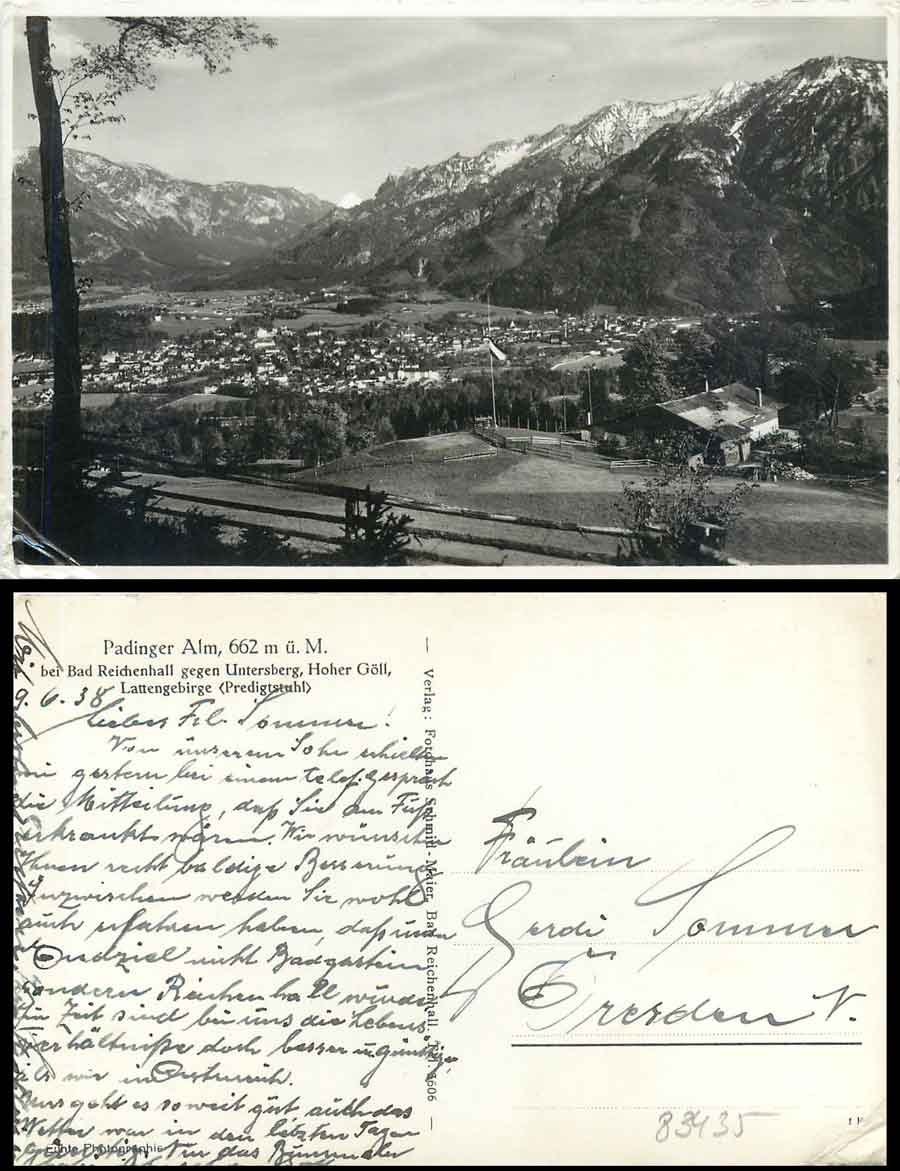 Padinger Alm, 662 m ü. M.
bei Bad Reichenhall gegen Untersberg, Hoher Göll,
Lattengebirge (Predigtstuhl)
9. 6. 38
Liebes Frl. Sommer!
Von unserem Sohn erhielten
wir gestern bei einem telef. Gespräch
die Mitteilung, daß Sie am Fuß
erkrankt wären. Wir wünschen
Ihnen recht baldige Besserung
Inzwischen werden Sie wohl
auch erfahren haben, daß unser
Endziel nicht Badgastein
sondern Reichenhall wurde
Zeit sind bei uns die Lebens
verhältniße doch besser u. günstiger
als wir in Österreich.
Uns geht es soweit gut, auch das
Wetter war in den letzten Tagen
Nur das
Echte Photographie
Verlag: Fotohaus Schmitt-Maier, Bad Reichenhall, Tel. 1606
Fräulein
Gerdi Sommer
Dresden N.
83435